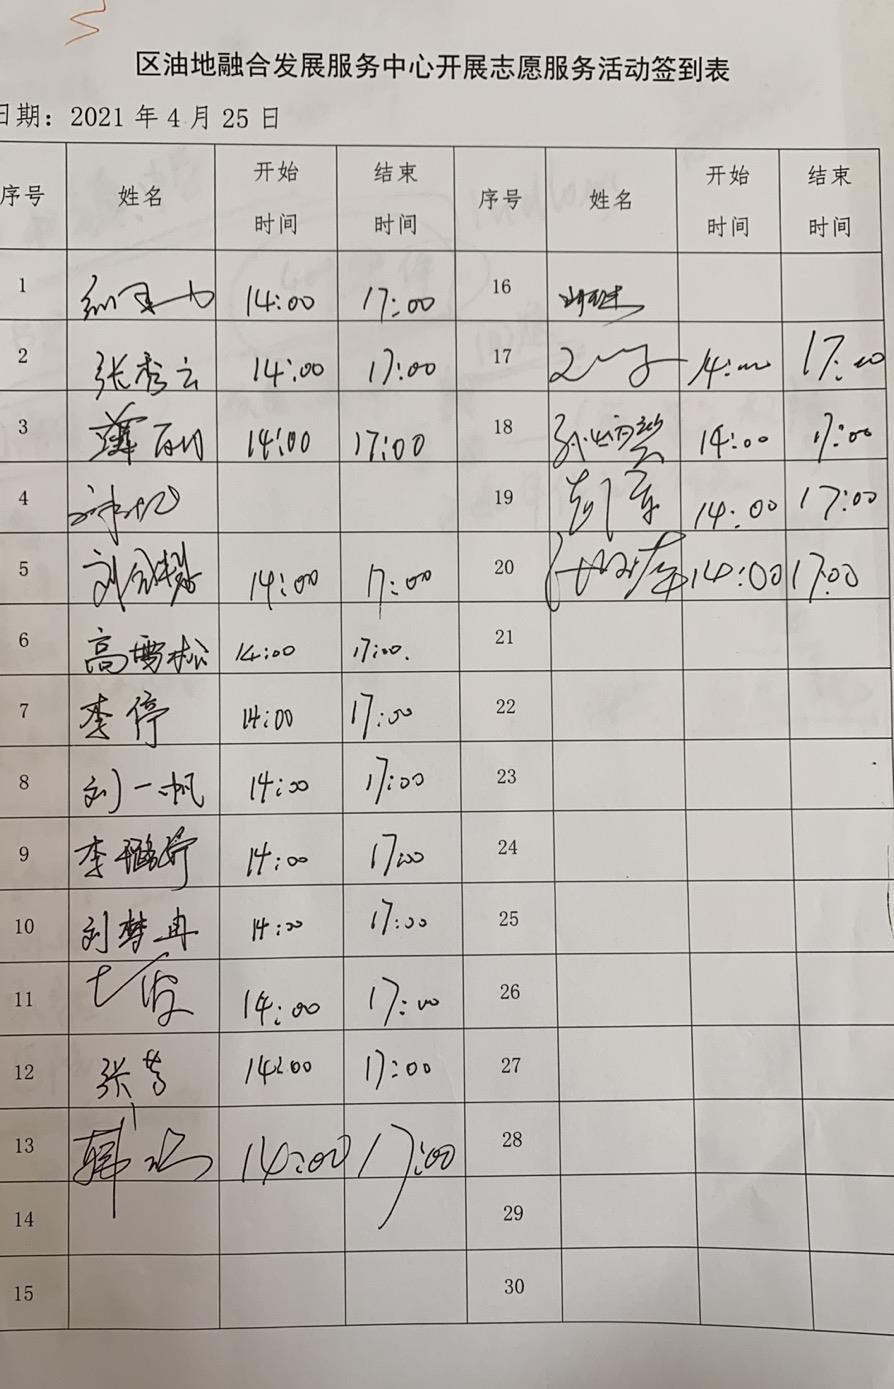 区油地融合发展服务中心开展志愿服务活动签到表
日期：2021 年 4 月 25 日
序号 姓名 开始时间 结束时间 序号 姓名 开始时间 结束时间
1 14:00 17:00 16
2 张秀云 14:00 17:00 17 14:00 17:00
3 14:00 17:00 18 14:00 17:00
4 19 14:00 17:00
5 14:00 17:00 20 14:00 17:00
6 高雪松 14:00 17:00. 21
7 李停 14:00 17:00 22
8 刘一帆 14:00 17:00 23
9 李璐婷 14:00 17:00 24
10 刘梦冉 14:00 17:00 25
11 14:00 17:00 26
12 张芳 14:00 17:00 27
13 14:00 17:00 28
14 29
15 30